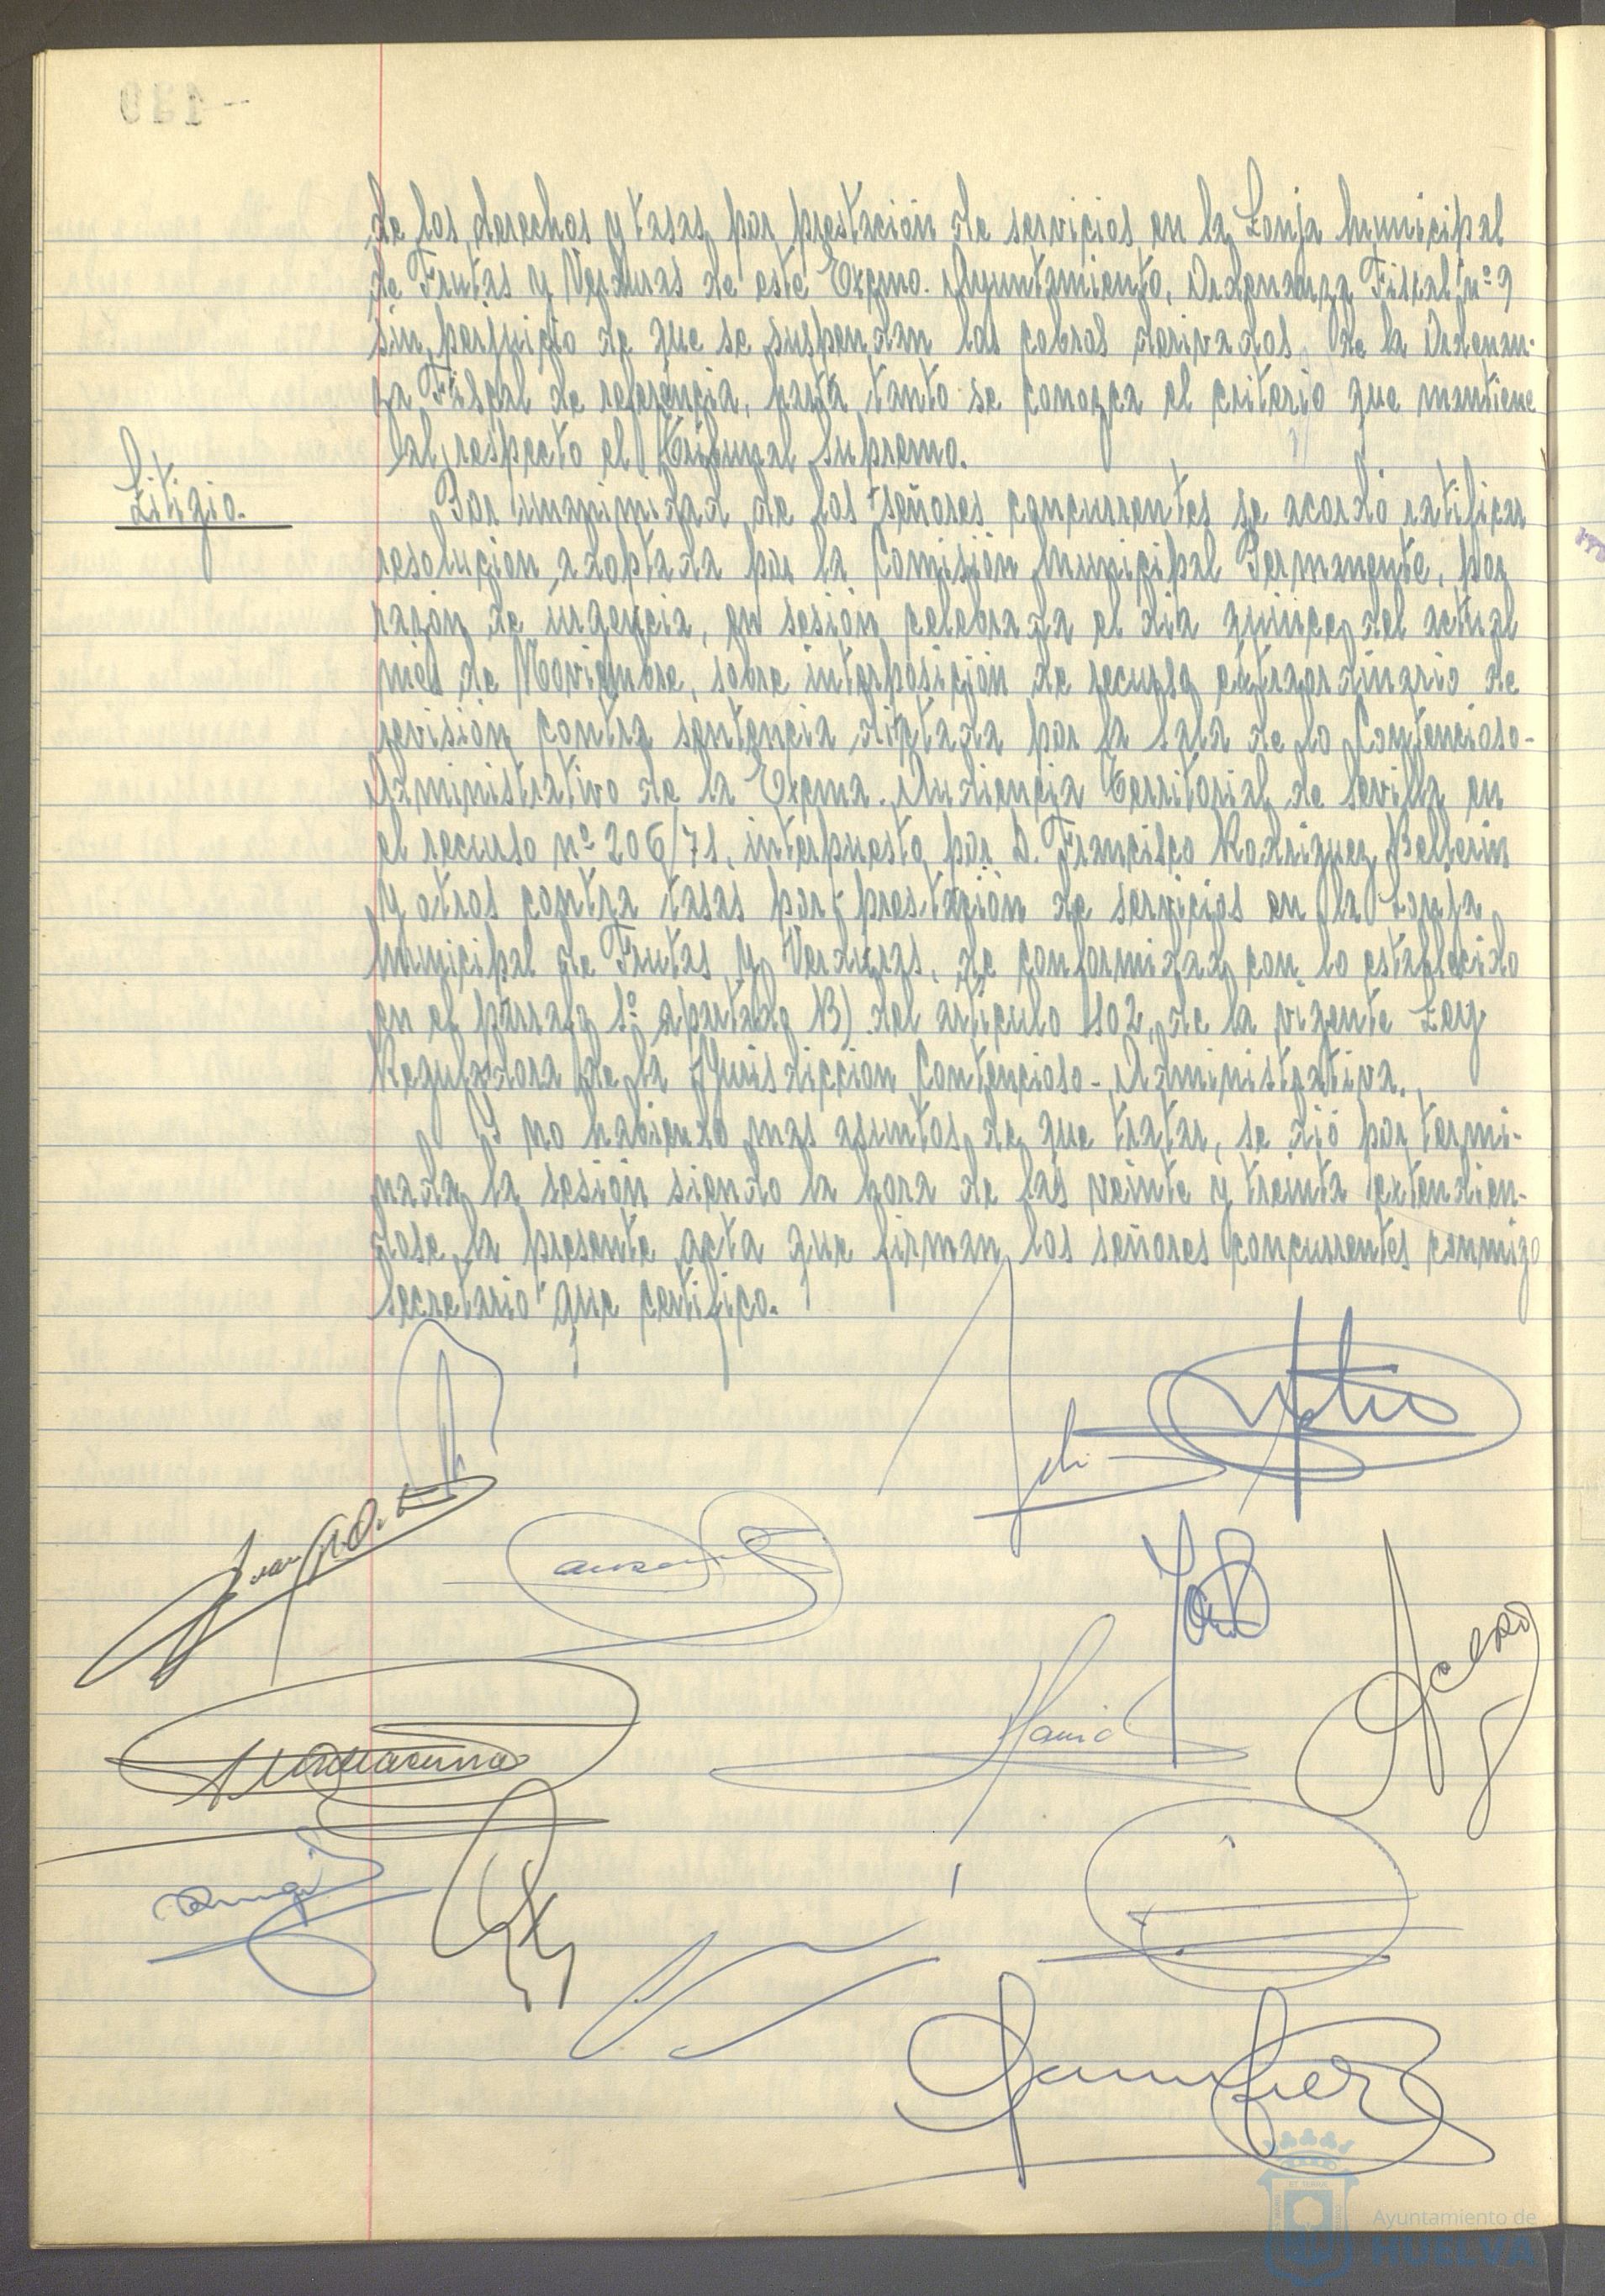 de los derechos y tasas por prestación de servicios en la Lonja Municipal
de Frutas y Verduras de este Excmo. Ayuntamiento, Ordenanza Fiscal nº 9
sin perjuicio de que se suspendan los cobros derivados de la Ordenan-
za Fiscal de referencia, hasta tanto se conozca el criterio que mantiene
al respecto el Tribunal Supremo.
Litigio.
Por unanimidad de los señores concurrentes se acordó ratificar
resolución adoptada por la Comisión Municipal Permanente, por
razón de urgencia, en sesión celebrada el día quince del actual
mes de Noviembre, sobre interposición de recurso extraordinario de
revisión contra sentencia dictada por la Sala de lo Contencioso-
Administrativo de la Excma. Audiencia Territorial de Sevilla en
el recurso nº 206/71, interpuesto por D. Francisco Rodriguez Bellerin
y otros contra tasas por prestación de servicios en la Lonja
Municipal de Frutas y Verduras, de conformidad con lo establecido
en el párrafo 1º apartado B) del artículo 102, de la vigente Ley
Reguladora de la Jurisdicción Contencioso-Administrativa.
Y no habiendo mas asuntos de que tratar, se dió por termi-
nada la sesión siendo la hora de las veinte y treinta extendien-
dose la presente acta que firman los señores concurrentes conmigo
Secretario que certifico.
Ayuntamiento de
HUELVA